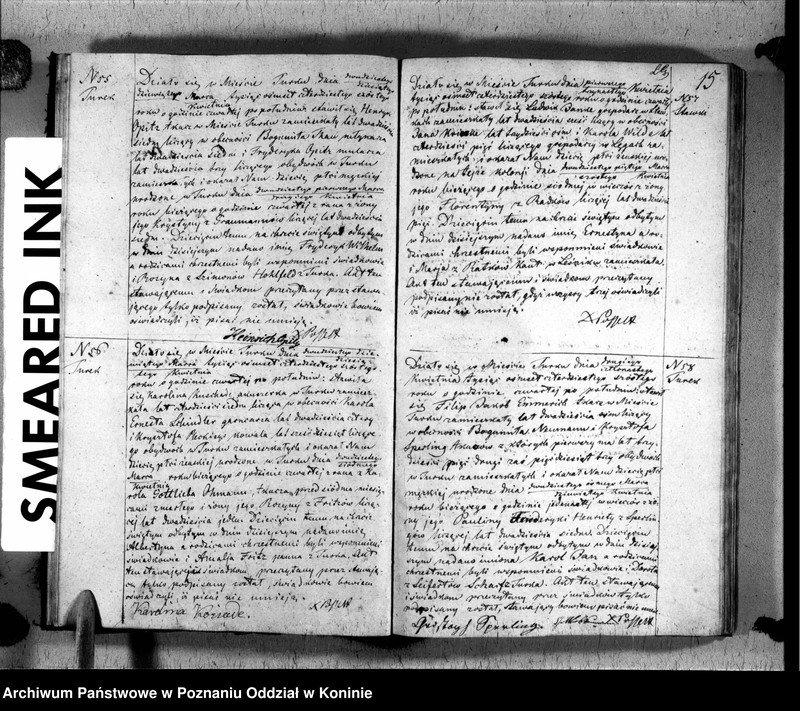 SMEARED INK
N 55
Turek
Działo się w Mieście Turku dnia dwudziestego
dziewiątego Marca tysiąc osiemset czterdziestego szóstego
Kwietnia
roku o godzinie czwartej po południu stawił się Henryk
Opitz tkacz w Mieście Turku zamieszkały lat dwadzieścia
siedm liczący w obecności Bogumiła
lat dwadzieścia siedm i Fryderyka Opitz mularza
lat dwadzieścia trzy liczącego obydwóch w Turku
zamieszkałych i okazał Nam dziecię płci męzkiej
urodzone w Turku dnia dwudziestego pierwszego Marca
Kwietnia
roku bieżącego o godzinie czwartej z rana z żony
jego Krystyny z Graumannów liczącej lat dwadzieścia
siedm. Dziecięciu temu na chrzcie świętym odbytym
w dniu dzisiejszym nadano imię Fryderyk Wilhelm
a rodzicami chrzestnemi byli wspomnieni świadkowie
i Rozyna z Szimonów Hohlfeld z Turku. Akt ten
stawającemu i świadkom przeczytany przez stawa
jącego tylko podpisany został, świadkowie bowiem
oświadczyli iż pisać nie umieją.
Heinrich Opitz
N 56
Turek
Działo się w Mieście Turku dnia dwudziestego
Marca tysiąc osiemset czterdziestego szóstego
Kwietnia
roku o godzinie czwartej po południu stawiła
się Karolina akuszerka w Turku zamiesz
kała lat czterdzieści siedm licząca w obecności Karola
Ernesta Schindler garncarza lat dwadzieścia cztery
i Krysztofa kowala lat sześćdziesiąt liczące
go obydwóch w Turku zamieszkałych i okazała Nam
dziecię płci żeńskiej urodzone w Turku dnia dwudziestego
siódmego
Marca roku bieżącego o godzinie czwartej z rana z Ka
Kwietnia
rola Gottlieba Ohmann, tkacza, przed siedmią miesią
cami zmarłego i żony jego Rozyny z Fritzów liczą
cej lat dwadzieścia jeden. Dziecięciu temu na chrzcie
świętym odbytym w dniu dzisiejszym nadano imię
Albertyna a rodzicami chrzestnemi byli wspomnieni
świadkowie i Amalja Fritz panna z Turku. Akt
ten stawającej i świadkom przeczytany przez stawają
cą tylko podpisany został, świadkowie bowiem
oświadczyli, iż pisać nie umieją.
15
N 57
Działo się w Mieście Turku dnia pierwszego
Kwietnia
tysiąc osiemset czterdziestego szóstego roku o godzinie czwartej
po południu stawił się Ludwik gospodarz w
zamieszkały lat dwadzieścia sześć liczący w obecności
Jana lat trzydzieści ośm i Karola Wilde lat
czterdzieści pięć liczącego gospodarzy w za
mieszkałych i okazał Nam dziecię płci żeńskiej uro
dzone na tejże kolonji dnia dwudziestego piątego Marca
Kwietnia
roku bieżącego o godzinie siódmej w wieczór z żony
jego Florentyny z Radków liczącej lat dwadzieścia
pięć. Dziecięciu temu na chrzcie świętym odbytym
w dniu dzisiejszym nadano imię Ernestyna a ro
dzicami chrzestnemi byli wspomnieni świadkowie
i Marja z zamieszkała.
Akt ten stawającemu i świadkom przeczytany
podpisany nie został, gdyż wszyscy trzej oświadczyli
iż pisać nie umieją.
N 58
Turek
Działo się w Mieście Turku dnia drugiego
czternastego
Kwietnia tysiąc osiemset czterdziestego szóstego
roku o godzinie czwartej po południu stawił
się Filip Jakob tkacz w Mieście
Turku zamieszkały lat dwadzieścia ośm liczący
w obecności Bogumiła Neumann i Krysztofa
Sperling tkaczów z których pierwszy ma lat trzy
dzieści pięć drugi zaś pięćdziesiąt trzy obydwóch
w Turku zamieszkałych i okazał Nam dziecię płci
męzkiej urodzone dnia dwudziestego ósmego Marca
dziewiątego Kwietnia
roku bieżącego o godzinie jedenastej w wieczór z żo
ny jego Pauliny Henriety z Sperlin
gów liczącej lat dwadzieścia siedm. Dziecięciu
temu na chrzcie świętym odbytym w dniu dzisiej
szym nadano imiona Karol a rodzicami
chrzestnemi byli wspomnieni świadkowie i Dorota
z Seifertów z Turku. Akt ten stawającemu
i świadkom przeczytany przez świadków tylko
podpisany został, stawający bowiem pisać nie umie.
Sperling
Archiwum Państwowe w Poznaniu Oddział w Koninie